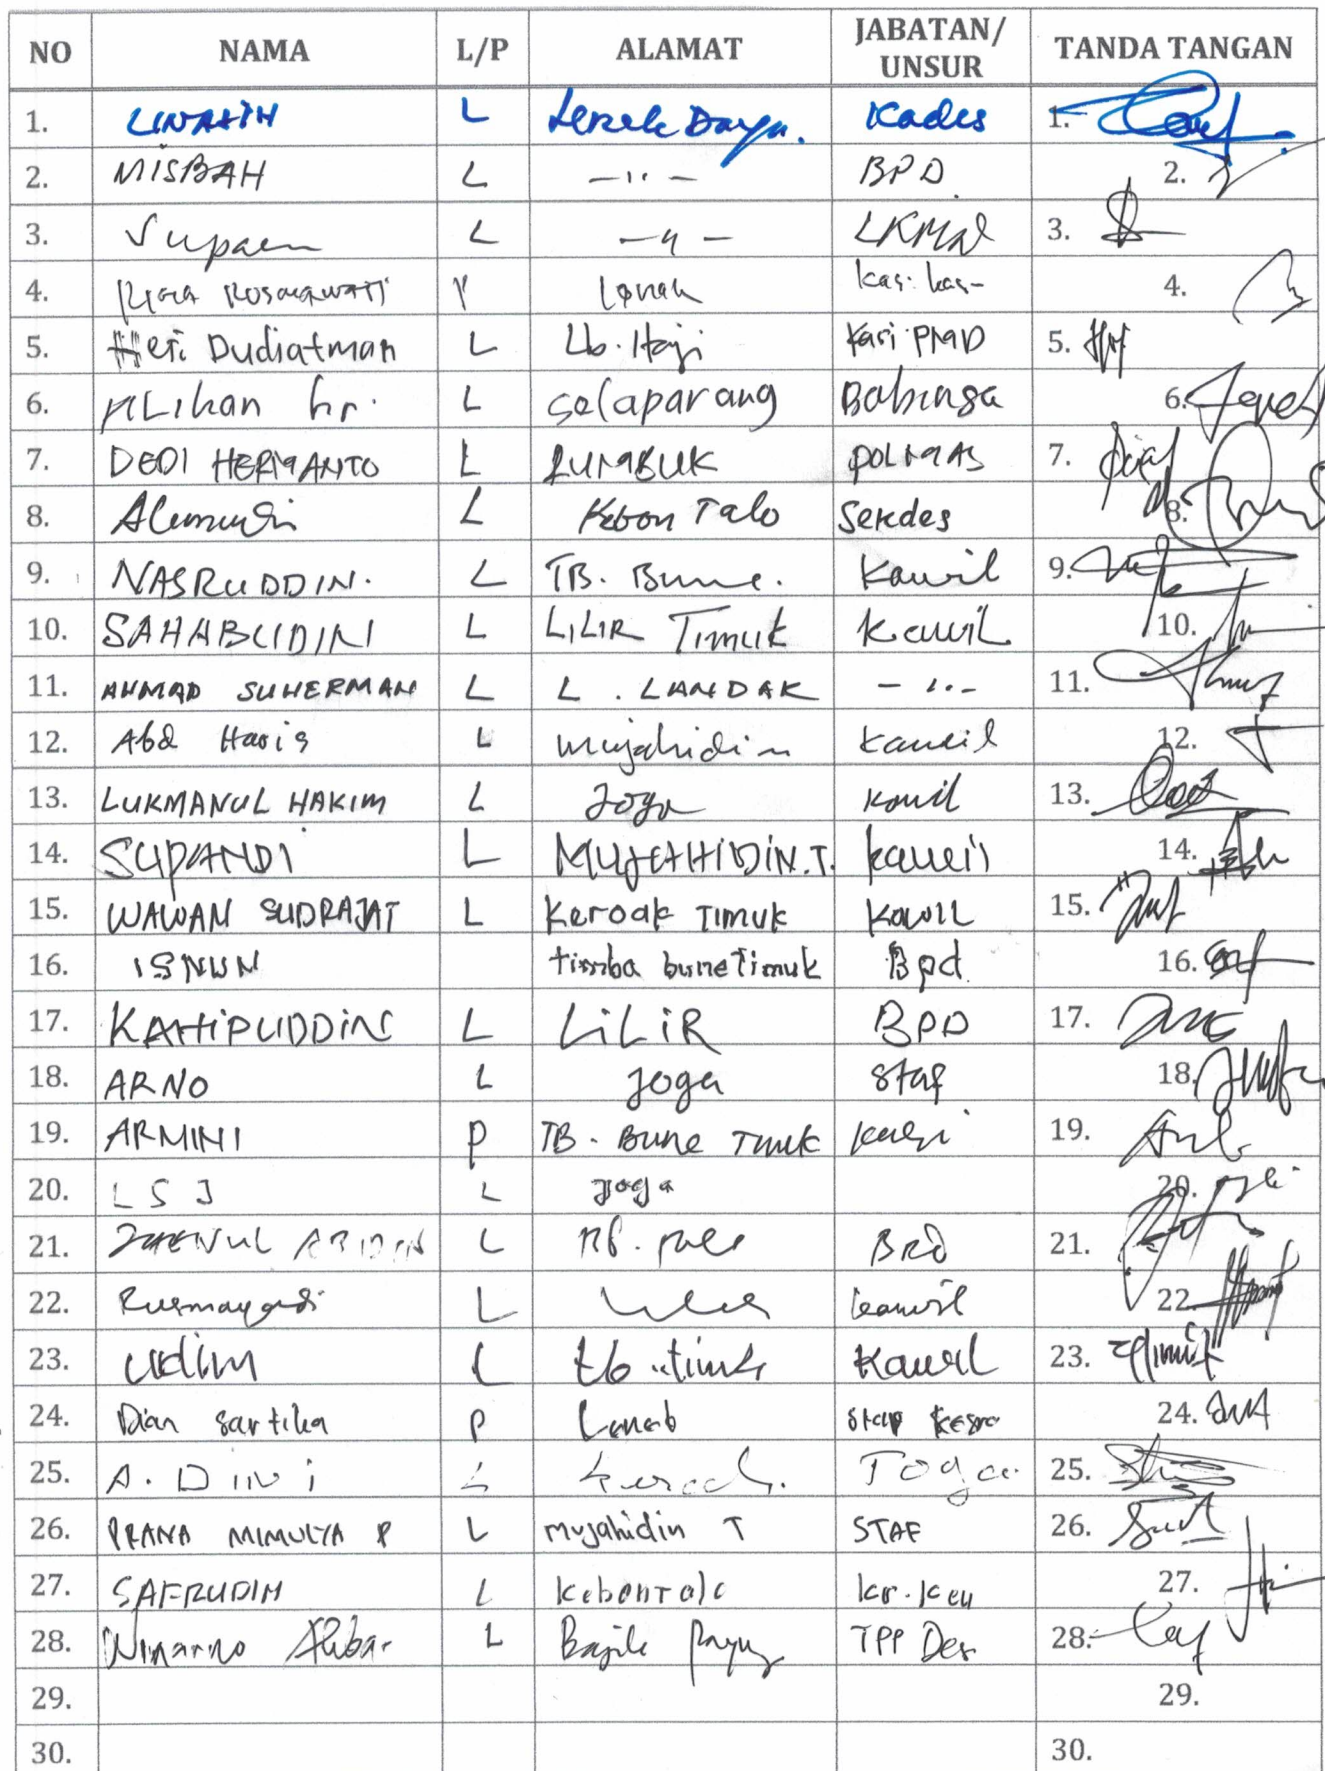 NO NAMA L/P ALAMAT JABATAN/ UNSUR TANDA TANGAN
1. L Lenek Daya. Kades 1.
2. MISBAH L —"— BPD 2.
3. Supaen L —"— LKMD 3.
4. Rosmawati P Lenek Kasi. kes- 4.
5. Heri Dudiatman L Lb. Haji Kasi PMD 5.
6. ALikan hr. L Selaparang Babinsa 6.
7. DEDI HERMANTO L RUMBUK POLMAS 7.
8. L Kebon Talo Sekdes 8.
9. NASRUDDIN. L TB. Bune. Kawil 9.
10. SAHABUDIN L LILIR Timuk Kawil 10.
11. AHMAD SUHERMAN L L. LANDAK —"— 11.
12. Abd Haris L mujahidin Kawil 12.
13. LUKMANUL HAKIM L Joga Kawil 13.
14. SUPANDI L MUJAHIDIN.T. Kawil 14.
15. WAWAN SUDRAJAT L Keroak TIMUK Kawil 15.
16. ISNUN timba bune timuk Bpd 16.
17. KAHIPUDDIN L LiLiR BPD 17.
18. ARNO L Joga staf 18.
19. ARMINI P TB. Bune Timuk 19.
20. L S J L Joga 20.
21. ABIDIN L BPD 21.
22. L Kawil 22.
23. Udim L Kawil 23.
24. Dian Sartika P Lenek staf Kesra 24.
25. A. L Toga 25.
26. PRANA MIMULYA P L mujahidin T STAF 26.
27. SAFRUDIN L Kebontalo Kr. Keu 27.
28. Winarno Akbar L TPP Des 28.
29. 29.
30. 30.